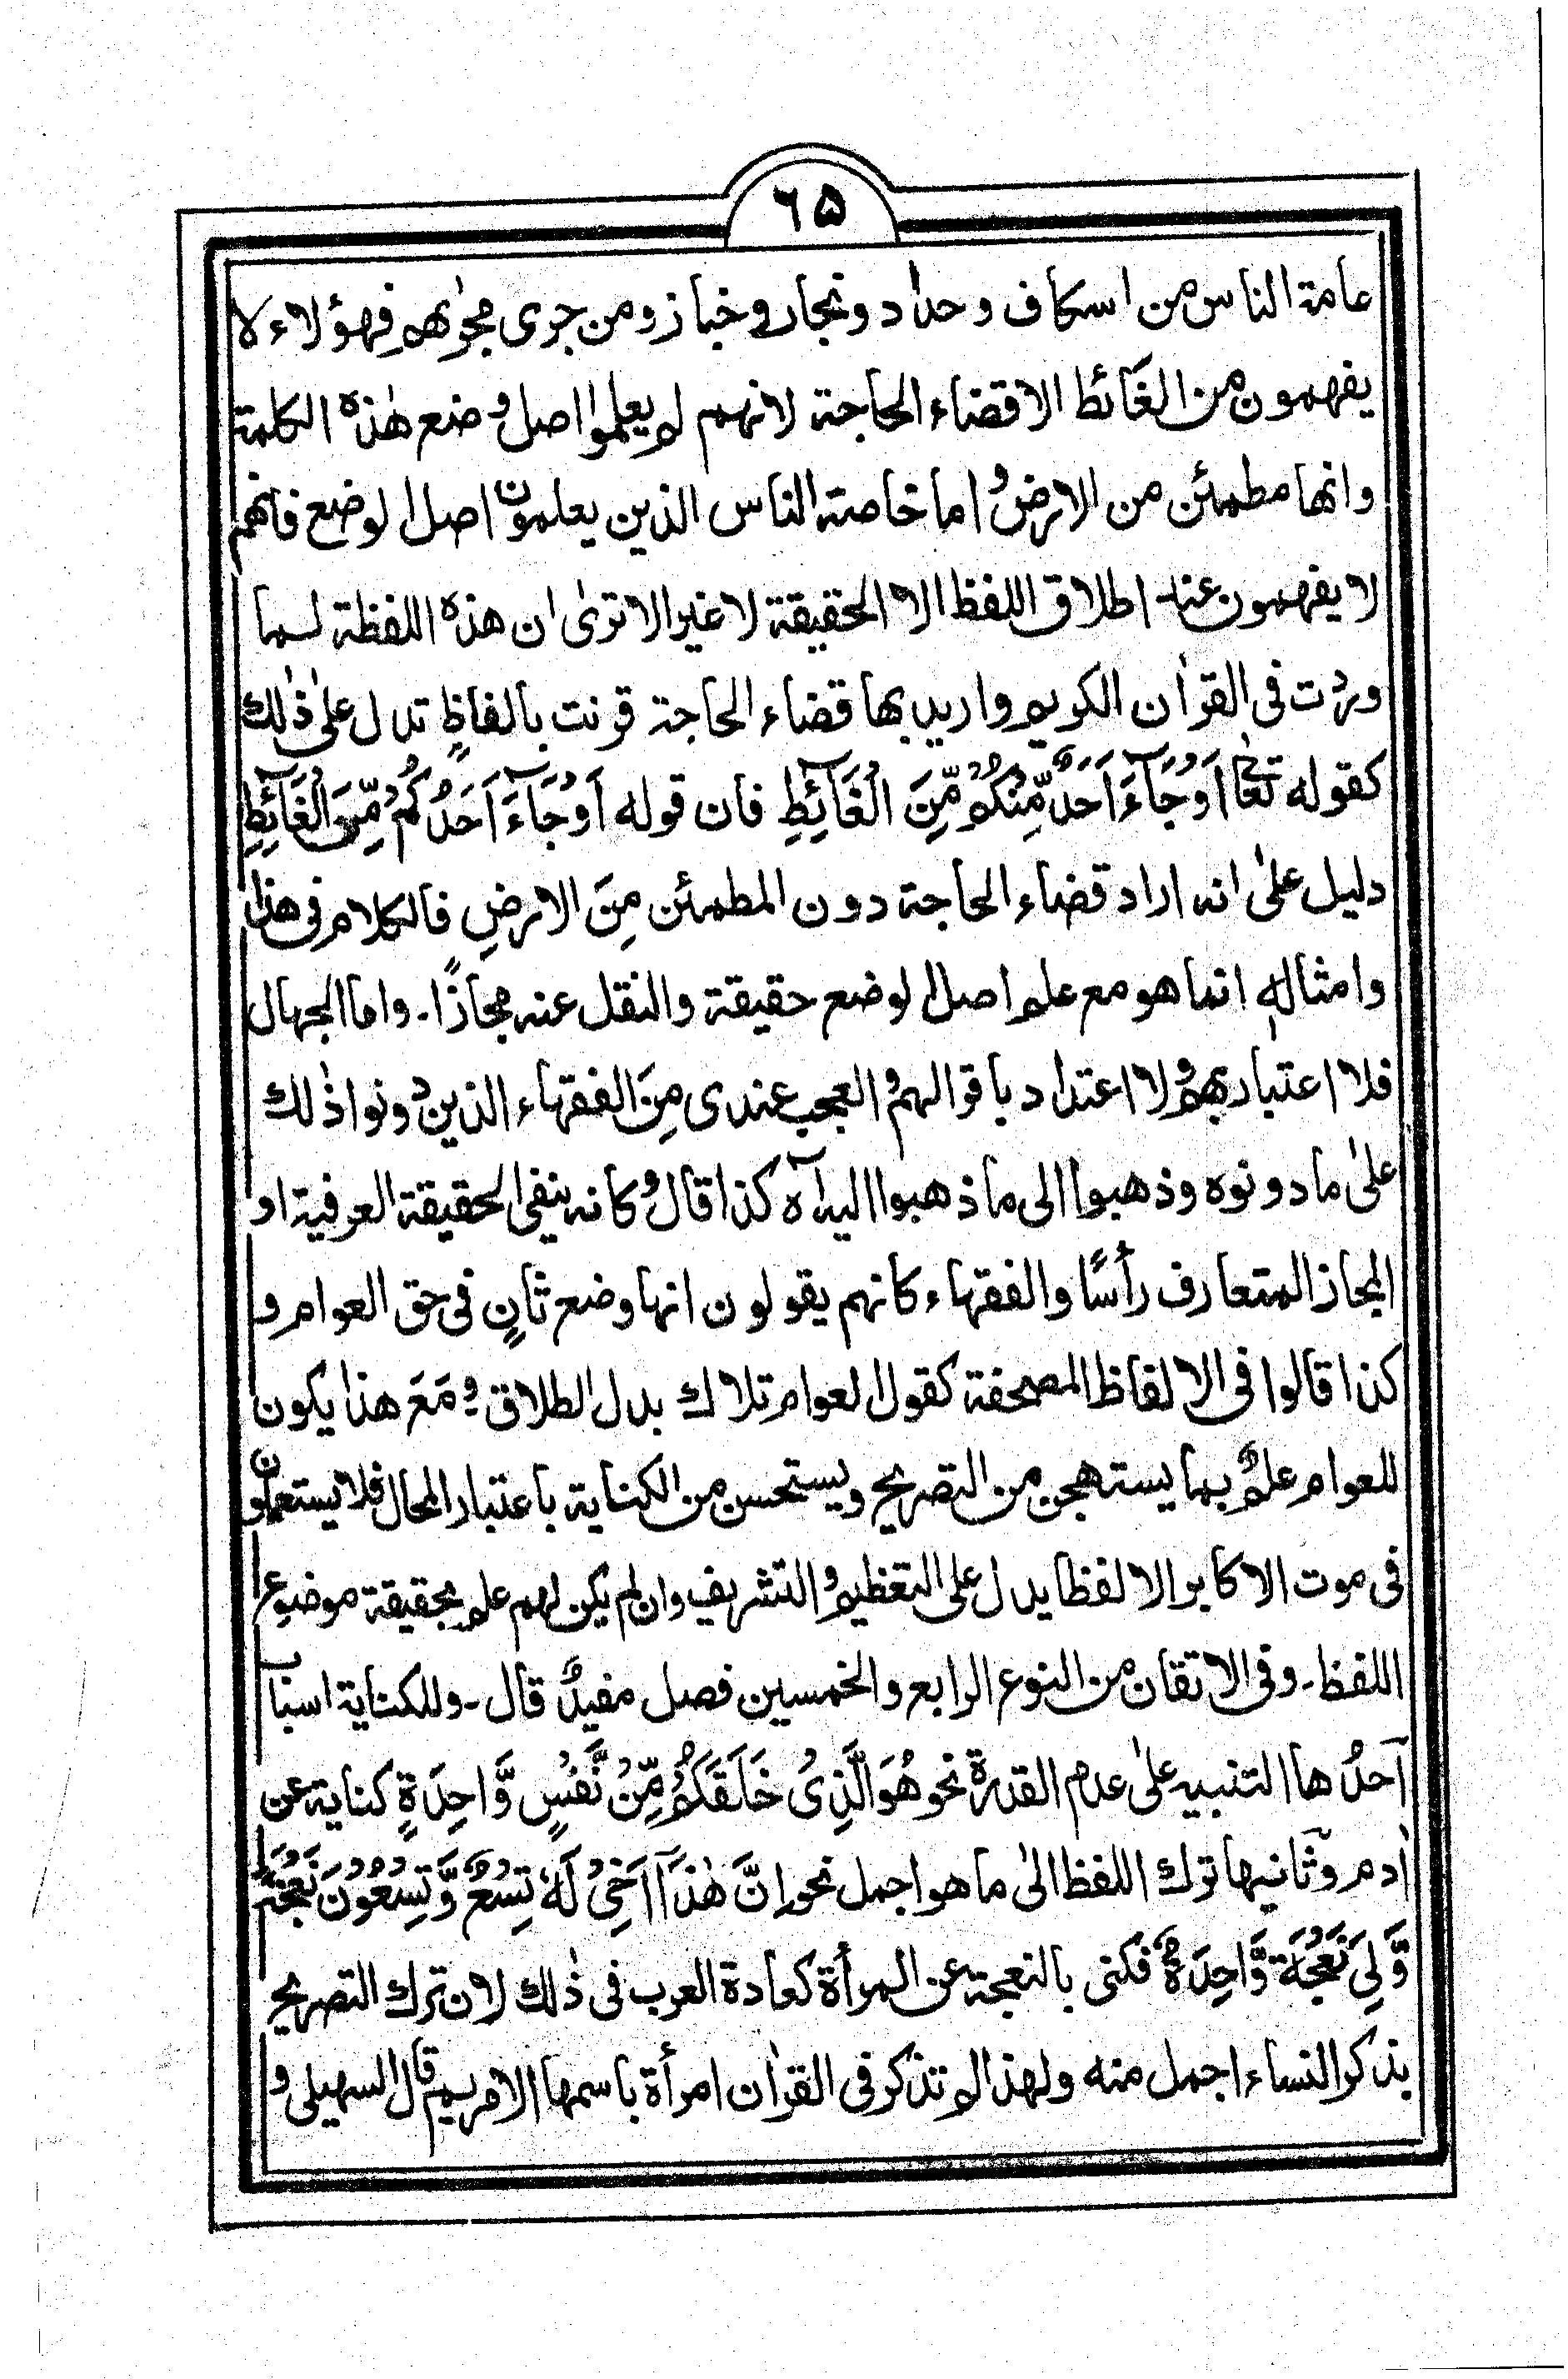 ٦۵
عامة الناس من اسكاف وحداد ونجار وخباز ومن جرى مجراهم فهؤلاء لا
يفهمون من الغائط الا قضاء الحاجة لانهم لم يعلموا اصل وضع هذه الكلمة
وانها مطمئن من الارض واما خاصة الناس الذين يعلمون اصل الوضع فانهم
لا يفهمون عند اطلاق اللفظ الا الحقيقة لا غير الا ترى ان هذه اللفظة لما
وردت فى القرآن الكريم واريد بها قضاء الحاجة قرنت بالفاظٍ تدل على ذلك
كقوله تعا اَوْجَآءَ اَحَدٌ مِّنْكُمْ مِّنَ الْغَآئِطِ فان قوله اَوْجَآءَ اَحَدُكُمْ مِّنَ الْغَآئِطِ
دليل على انه اراد قضاء الحاجة دون المطمئن مِنَ الارضِ فالكلام فى هذا
وامثالهٖ انما هو مع علم اصل الوضع حقيقة والنقل عنه مجازًا۔ واما الجهال
فلا اعتبار بهم ولا اعتداد باقوالهم والعجب عندى مِنَ الفقهاء الذين دونوا ذلك
على ما دونوه وذهبوا الى ما ذهبوا اليه آه كذا قال وكانه ينفى الحقيقة العرفية او
المجاز المتعارف رأسًا والفقهاء كانهم يقولون انها وضع ثانٍ فى حق العوام و
كذا قالوا فى الالفاظ المصحفة كقول العوام تلاك بدل الطلاق ومَعَ هذا يكون
للعوام علمٌ بما يستهجن من التصريح ويستحسن من الكناية باعتبار المحال فلا يستعملون
فى موت الاكابر الا لفظا يدل على التعظيم والتشريف وان لم يكن لهم علم بحقيقة موضوع
اللفظ۔ وفى الاتقان من النوع الرابع والخمسين فصل مفيدٌ قال۔ وللكناية اسباب
آحدُها التنبيه على عدم القدرة نحو هُوَ الَّذِىْ خَلَقَكُمْ مِّنْ نَّفْسٍ وَّاحِدَةٍ كناية عن
اٰدم وثانيها ترك اللفظ الى ما هو اجمل نحو اِنَّ هٰذَآ اَخِىْ لَهٗ تِسْعٌ وَّتِسْعُوْنَ نَعْجَةً
وَّلِىَ نَعْجَةٌ وَّاحِدَةٌ فكنى بالنعجة عن المرأة كعادة العرب فى ذلك لان ترك التصريح
بذكر النساء اجمل منه ولهذا لم تذكر فى القرآن امرأة باسمها الا مريم قال السهيلى و